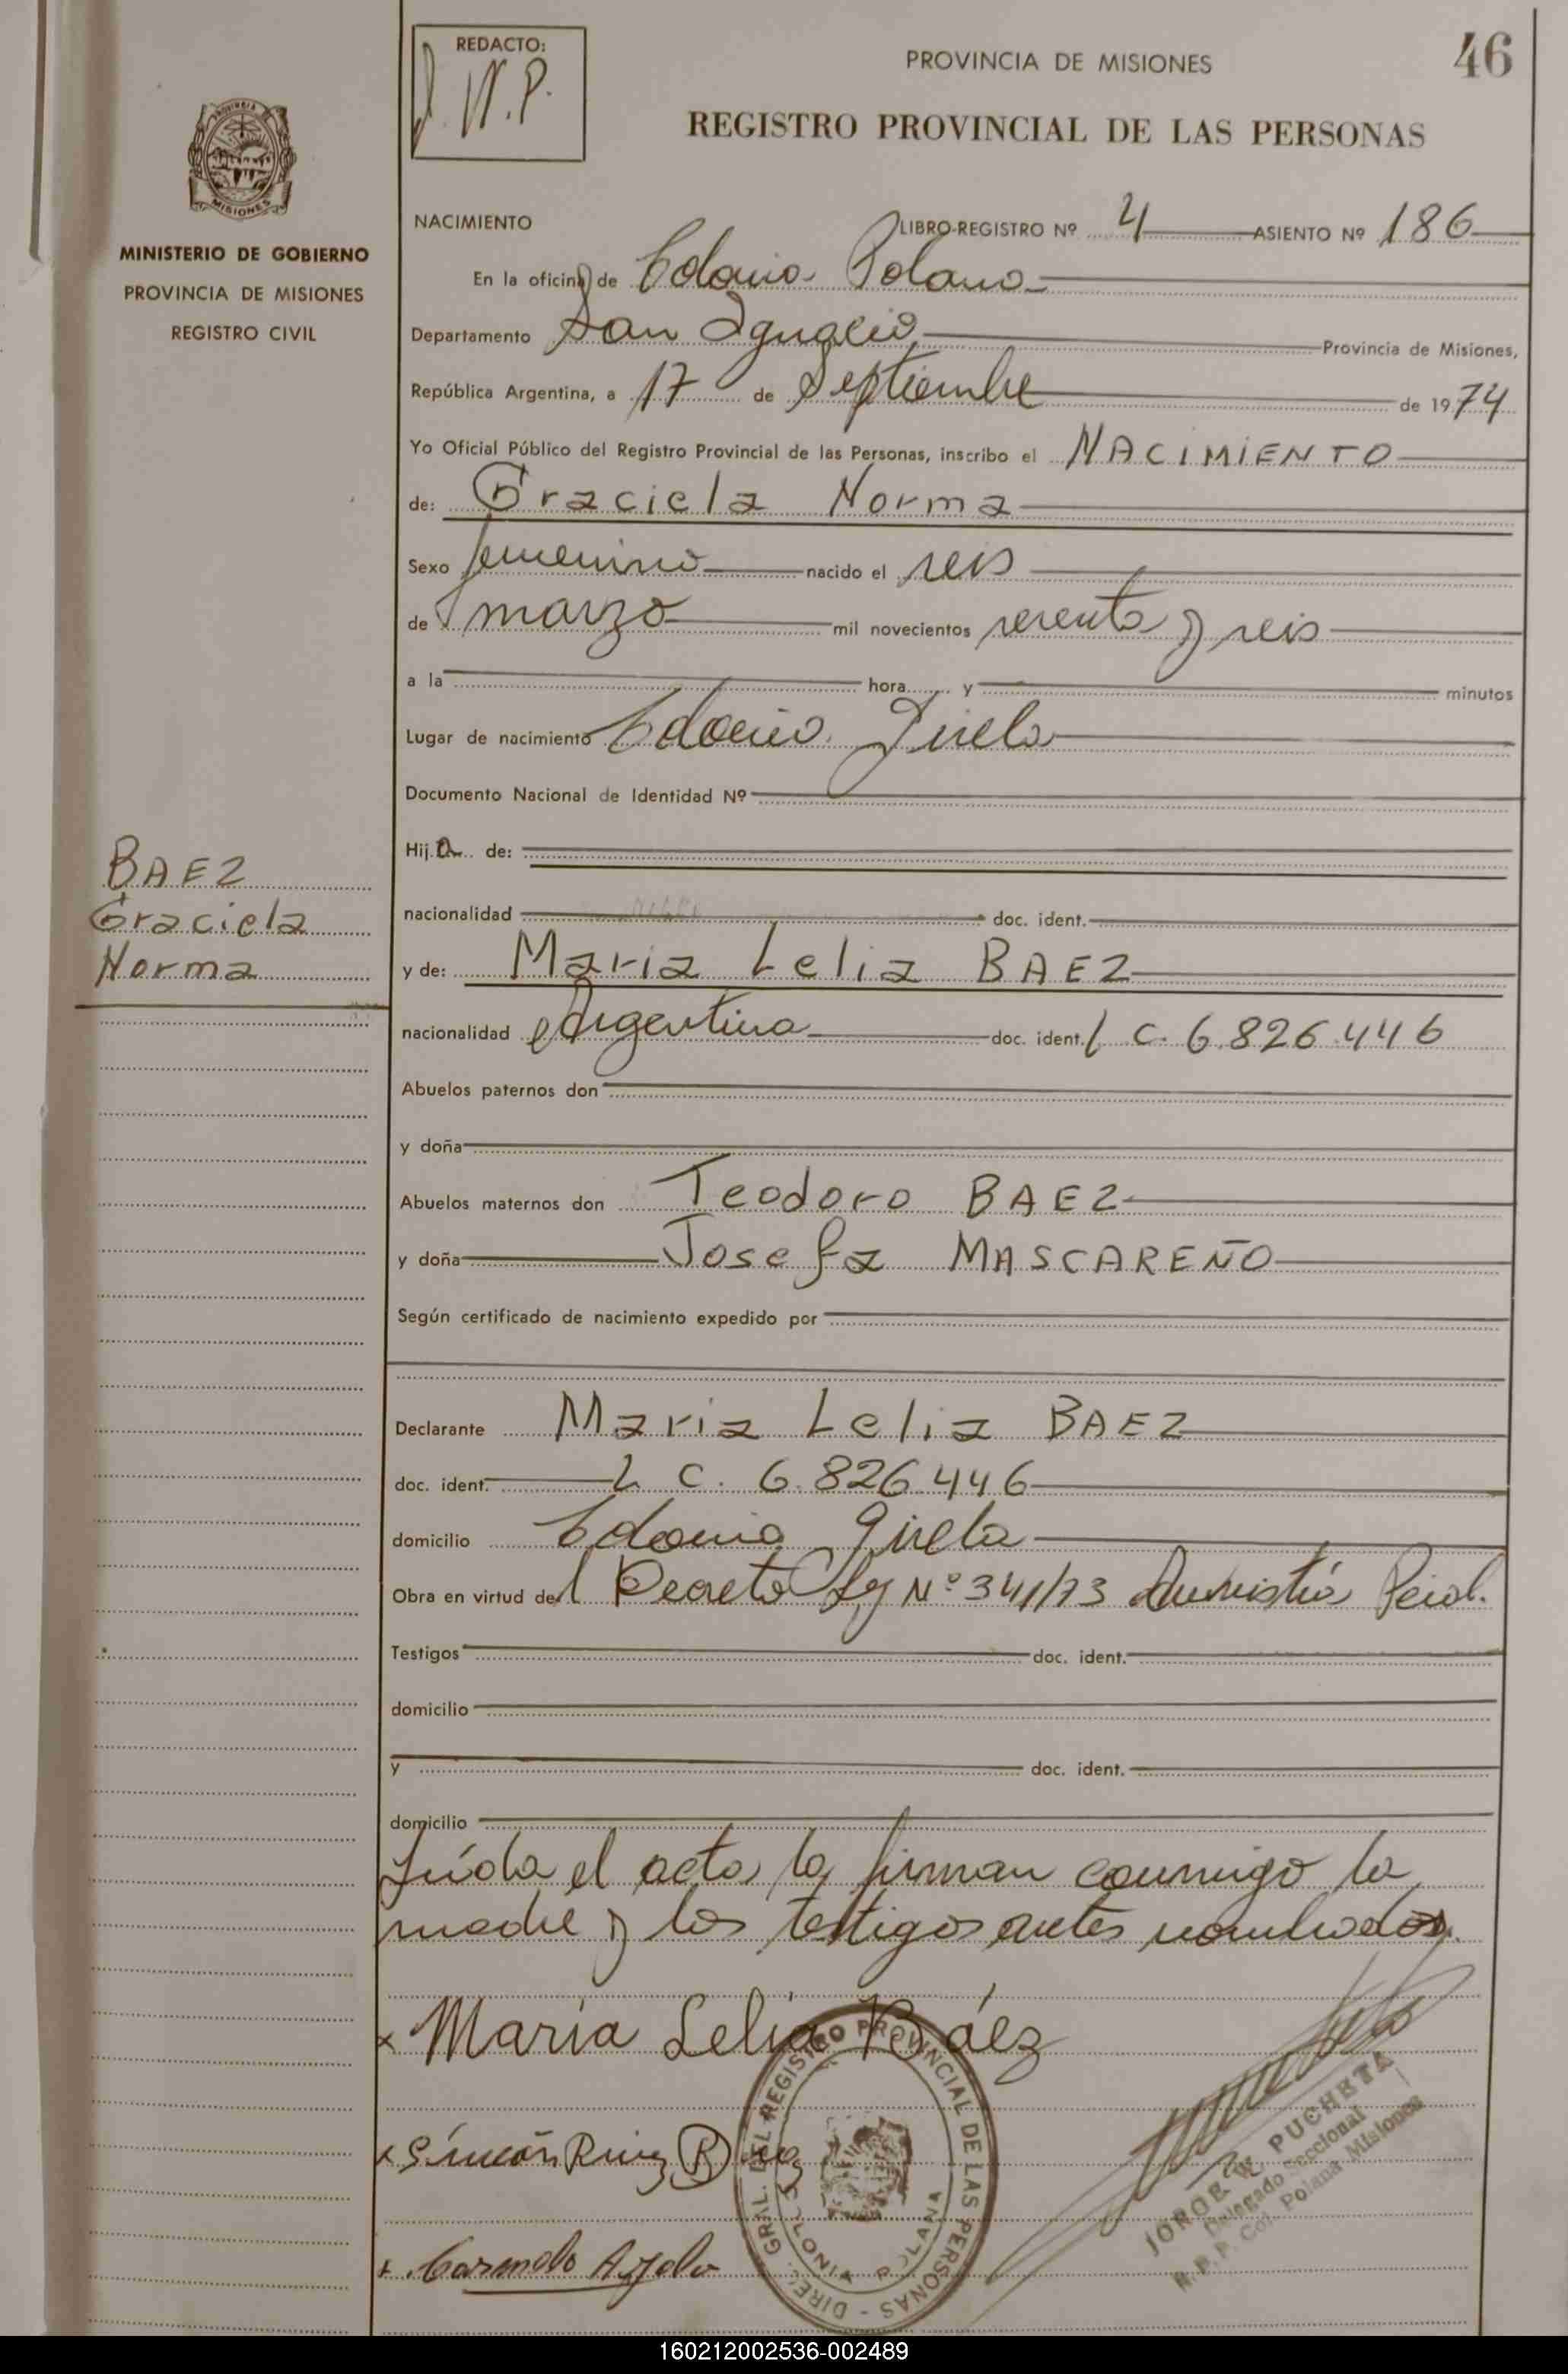 REDACTO:
J.W.P.
PROVINCIA DE MISIONES
46
REGISTRO PROVINCIAL DE LAS PERSONAS
PROVINCIA
MISIONES
MINISTERIO DE GOBIERNO
PROVINCIA DE MISIONES
REGISTRO CIVIL
NACIMIENTO LIBRO-REGISTRO Nº 4 ASIENTO Nº 186
En la oficina de Colonia Polana
Departamento San Ignacio Provincia de Misiones,
República Argentina, a 17 de Septiembre de 1974
Yo Oficial Público del Registro Provincial de las Personas, inscribo el NACIMIENTO
de: Graciela Norma
Sexo femenino nacido el seis
de marzo mil novecientos sesenta y seis
a la hora y minutos
Lugar de nacimiento Colonia Gisela
Documento Nacional de Identidad Nº
Hija de:
nacionalidad doc. ident.
BAEZ
Graciela
Norma
y de: Maria Lelia BAEZ
nacionalidad Argentina doc. ident. L C. 6.826.446
Abuelos paternos don
y doña
Abuelos maternos don Teodoro BAEZ
y doña Josefa MASCAREÑO
Según certificado de nacimiento expedido por
Declarante Maria Lelia BAEZ
doc. ident. L C. 6.826.446
domicilio Colonia Gisela
Obra en virtud del Decreto Ley Nº 341/73 Amnistía Pcial.
Testigos doc. ident.
domicilio
y doc. ident.
domicilio
Leída el acta la firman conmigo la
madre y los testigos antes nombrados.
x María Lelia Báez
x Simeón Ruiz
x Carmelo
DIREC. GRAL. DEL REGISTRO PROVINCIAL DE LAS PERSONAS -
COLONIA POLANA
JORGE W. PUCHETA
Delegado Seccional
R. P. P. Col. Polana Misiones
160212002536-002489